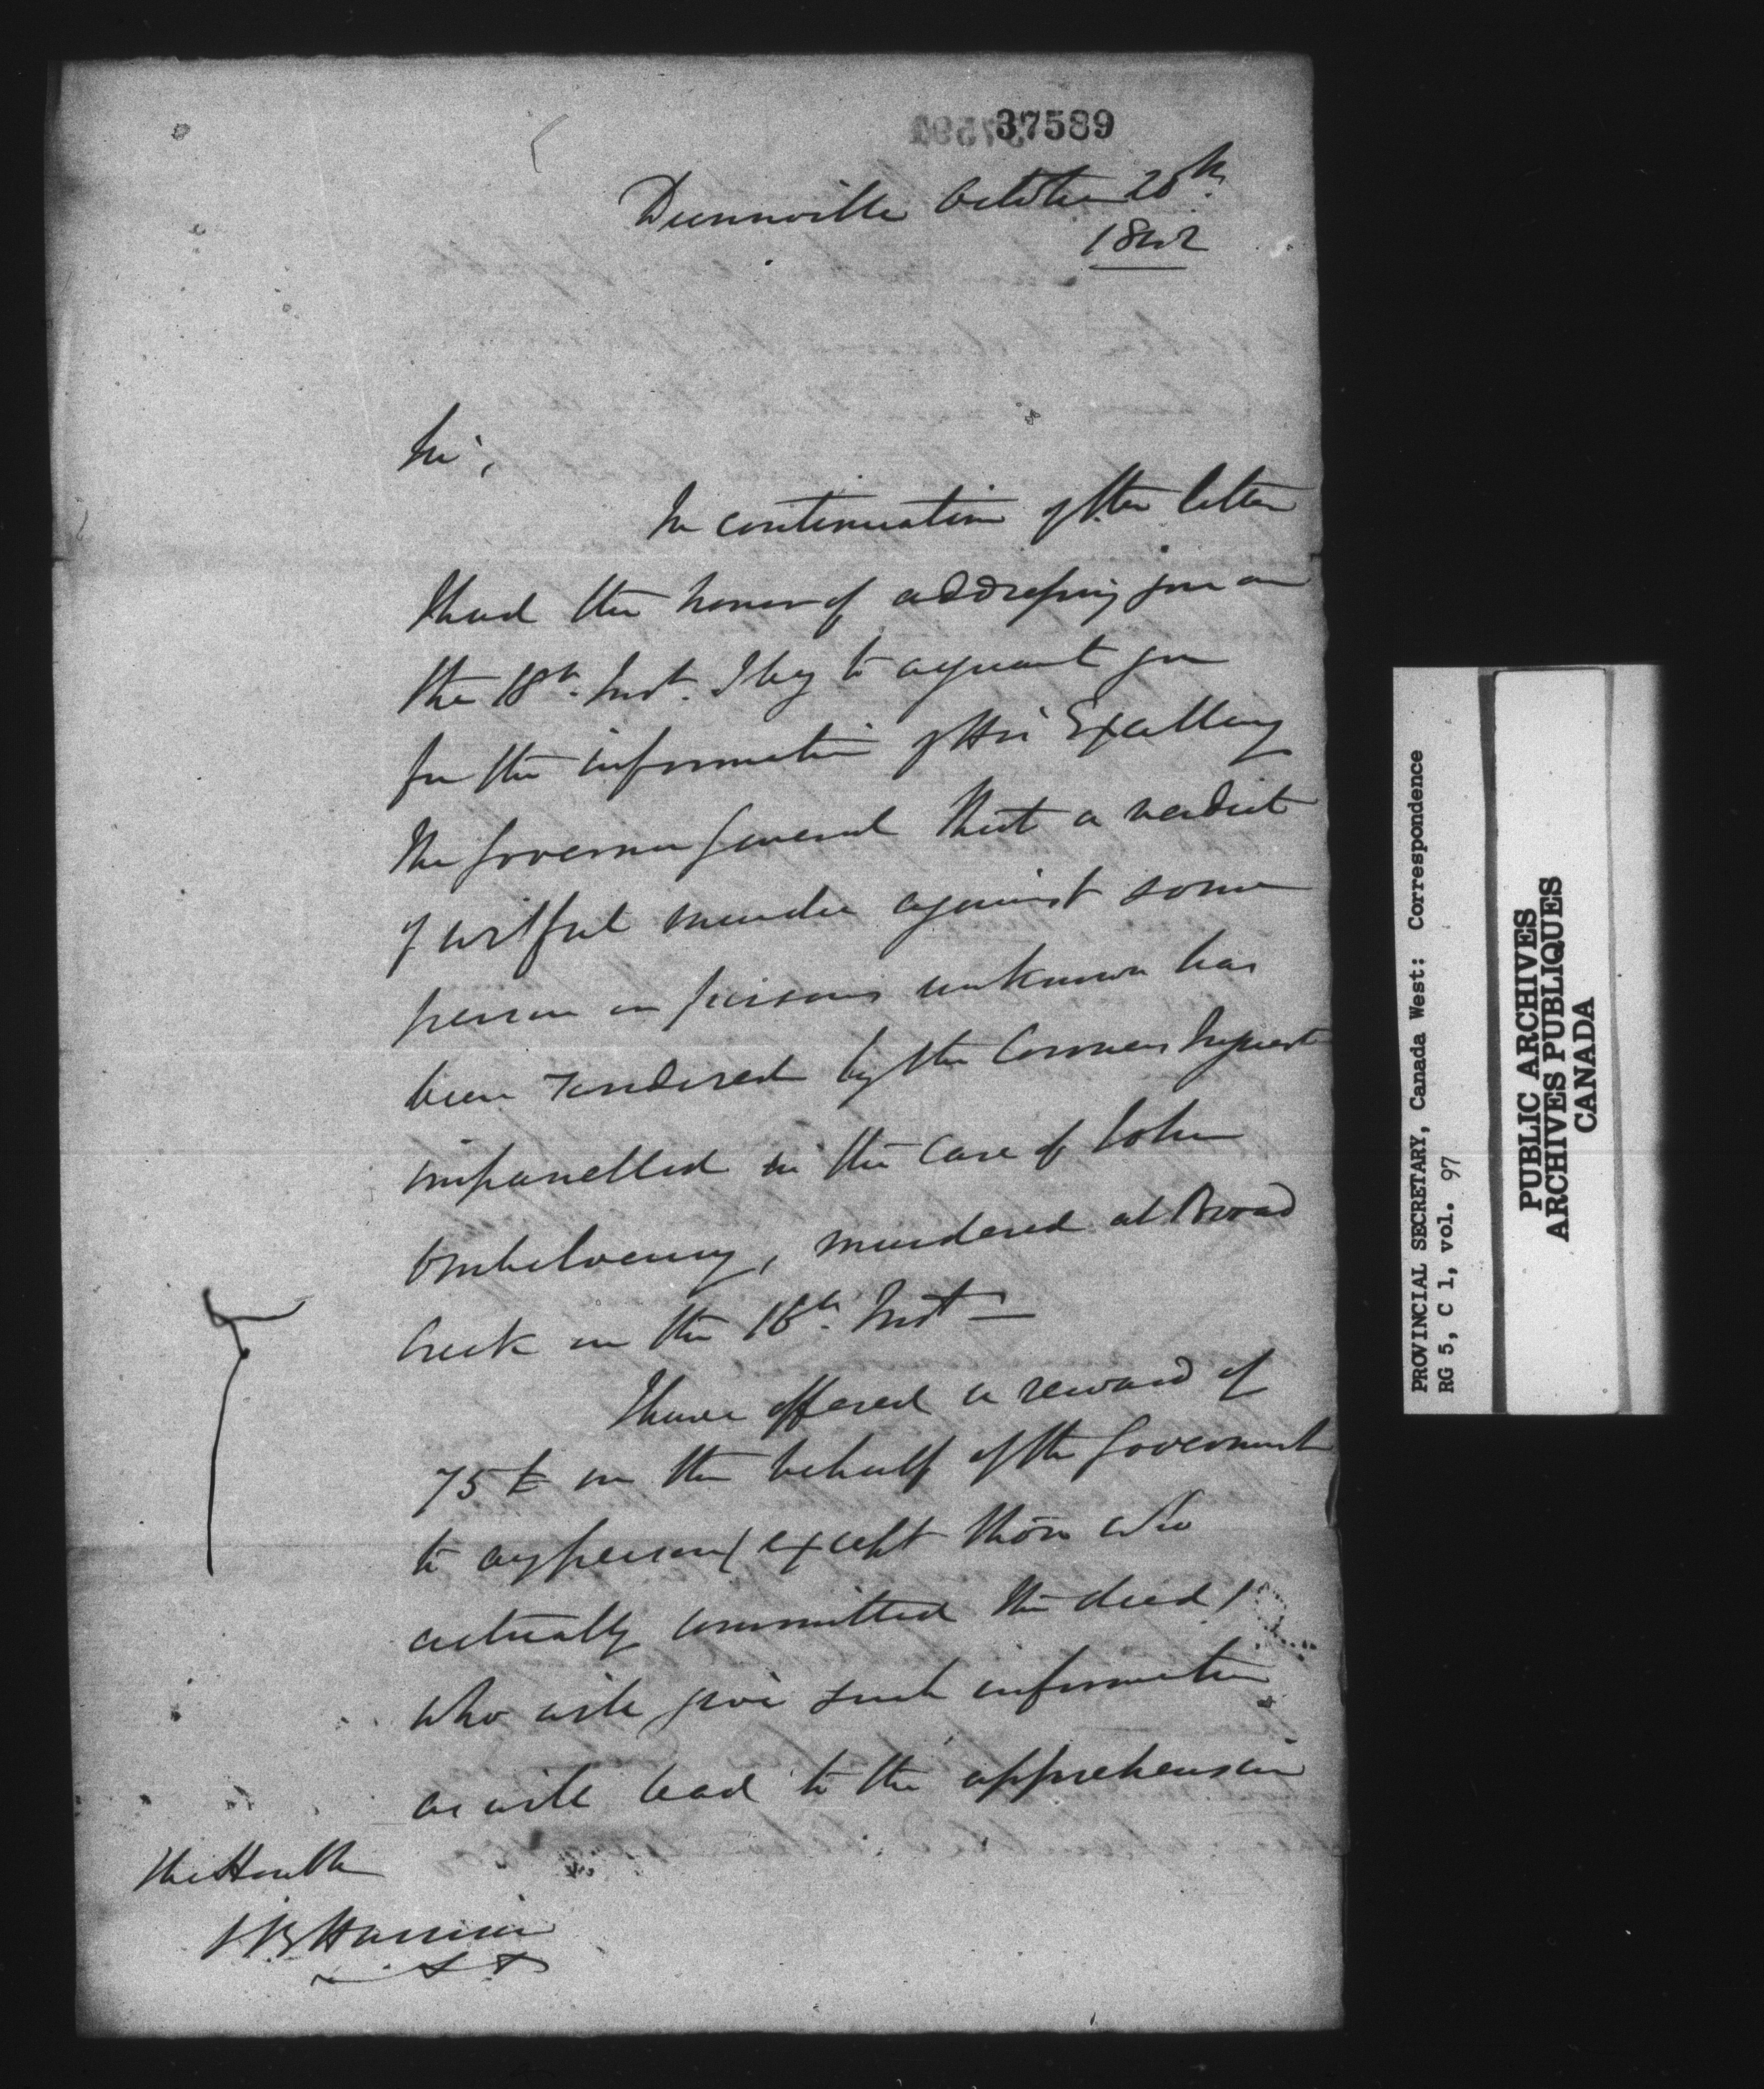 37589
Dunnville October 20th
1842
Sir,
In continuation of the letter
I had the honor of addressing you on
the 18th Inst. I beg to acquaint you
for the information of His Excellency
the Governor General that a verdict
of wilful murder against some
person or persons unknown has
been rendered by the Coroners Inquest
impanelled in the case of John
murdered at Broad
Creek on the 16th Inst —
I have offered a reward of
75 £ on the behalf of the Government
to any person ( except those who
actually committed the deed )
who will give such information
as will lead to the apprehension
The Honble
S B Harrison
PROVINCIAL SECRETARY, Canada West: Correspondence
RG 5, C 1, vol. 97
PUBLIC ARCHIVES
ARCHIVES PUBLIQUES
CANADA